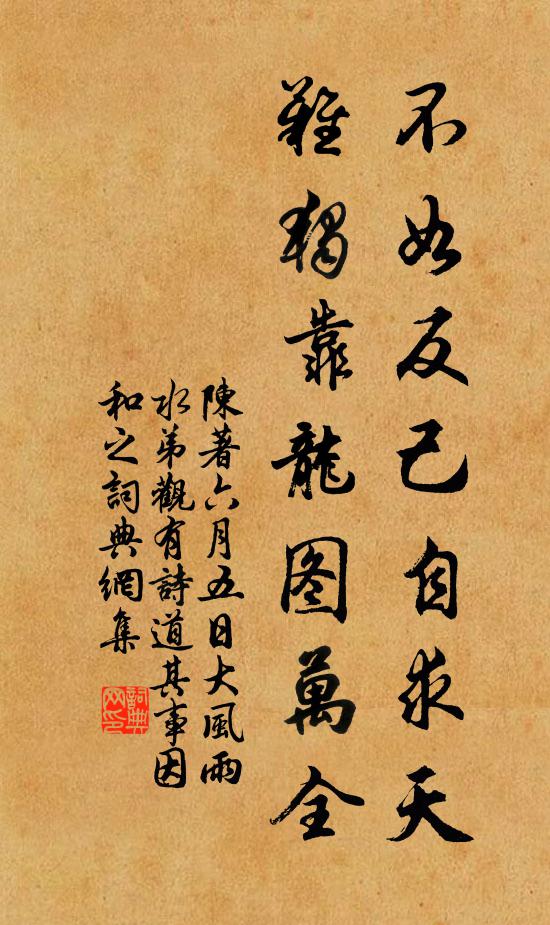 不如反己自求天
難獨靠龍图萬全
陳著六月五日大風雨
水弟觀有詩道其事因
和之詞典網集
詞典
网印